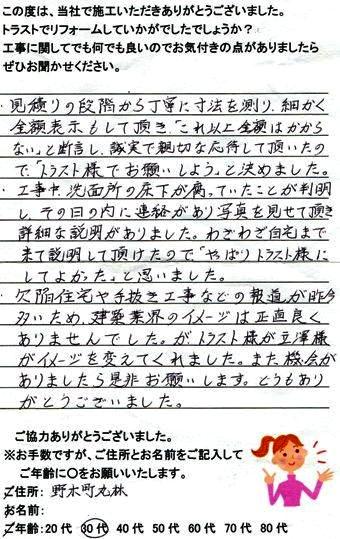 この度は、当社で施工いただきありがとうございました。
トラストでリフォームしていかがでしたでしょうか？
工事に関してでも何でも良いのでお気付きの点がありましたら
ぜひお聞かせください。
・見積りの段階から丁寧に寸法を測り、細かく
金額表示もして頂き、「これ以上金額はかから
ない」と断言し、誠実で親切な応待して頂いたの
で「トラスト様でお願いしよう」と決めました。
・工事中、洗面所の床下が腐っていたことが判明
し、その日の内に連絡があり写真を見せて頂き
詳細な説明がありました。わざわざ自宅まで
来て説明して頂けたので「やはりトラスト様に
してよかった」と思いました。
・欠陥住宅や手抜き工事などの報道が昨今
多いため、建築業界のイメージは正直良く
ありませんでした。がトラスト様が立澤様
がイメージを変えてくれました。また機会が
ありましたら是非お願いします。どうもあり
がとうございました。
ご協力ありがとうございました。
※お手数ですが、ご住所とお名前をご記入して
ご年齢に〇をお願いいたします。
ご住所: 野木町丸林
お名前:
ご年齢:20代 30代 40代 50代 60代 70代 80代